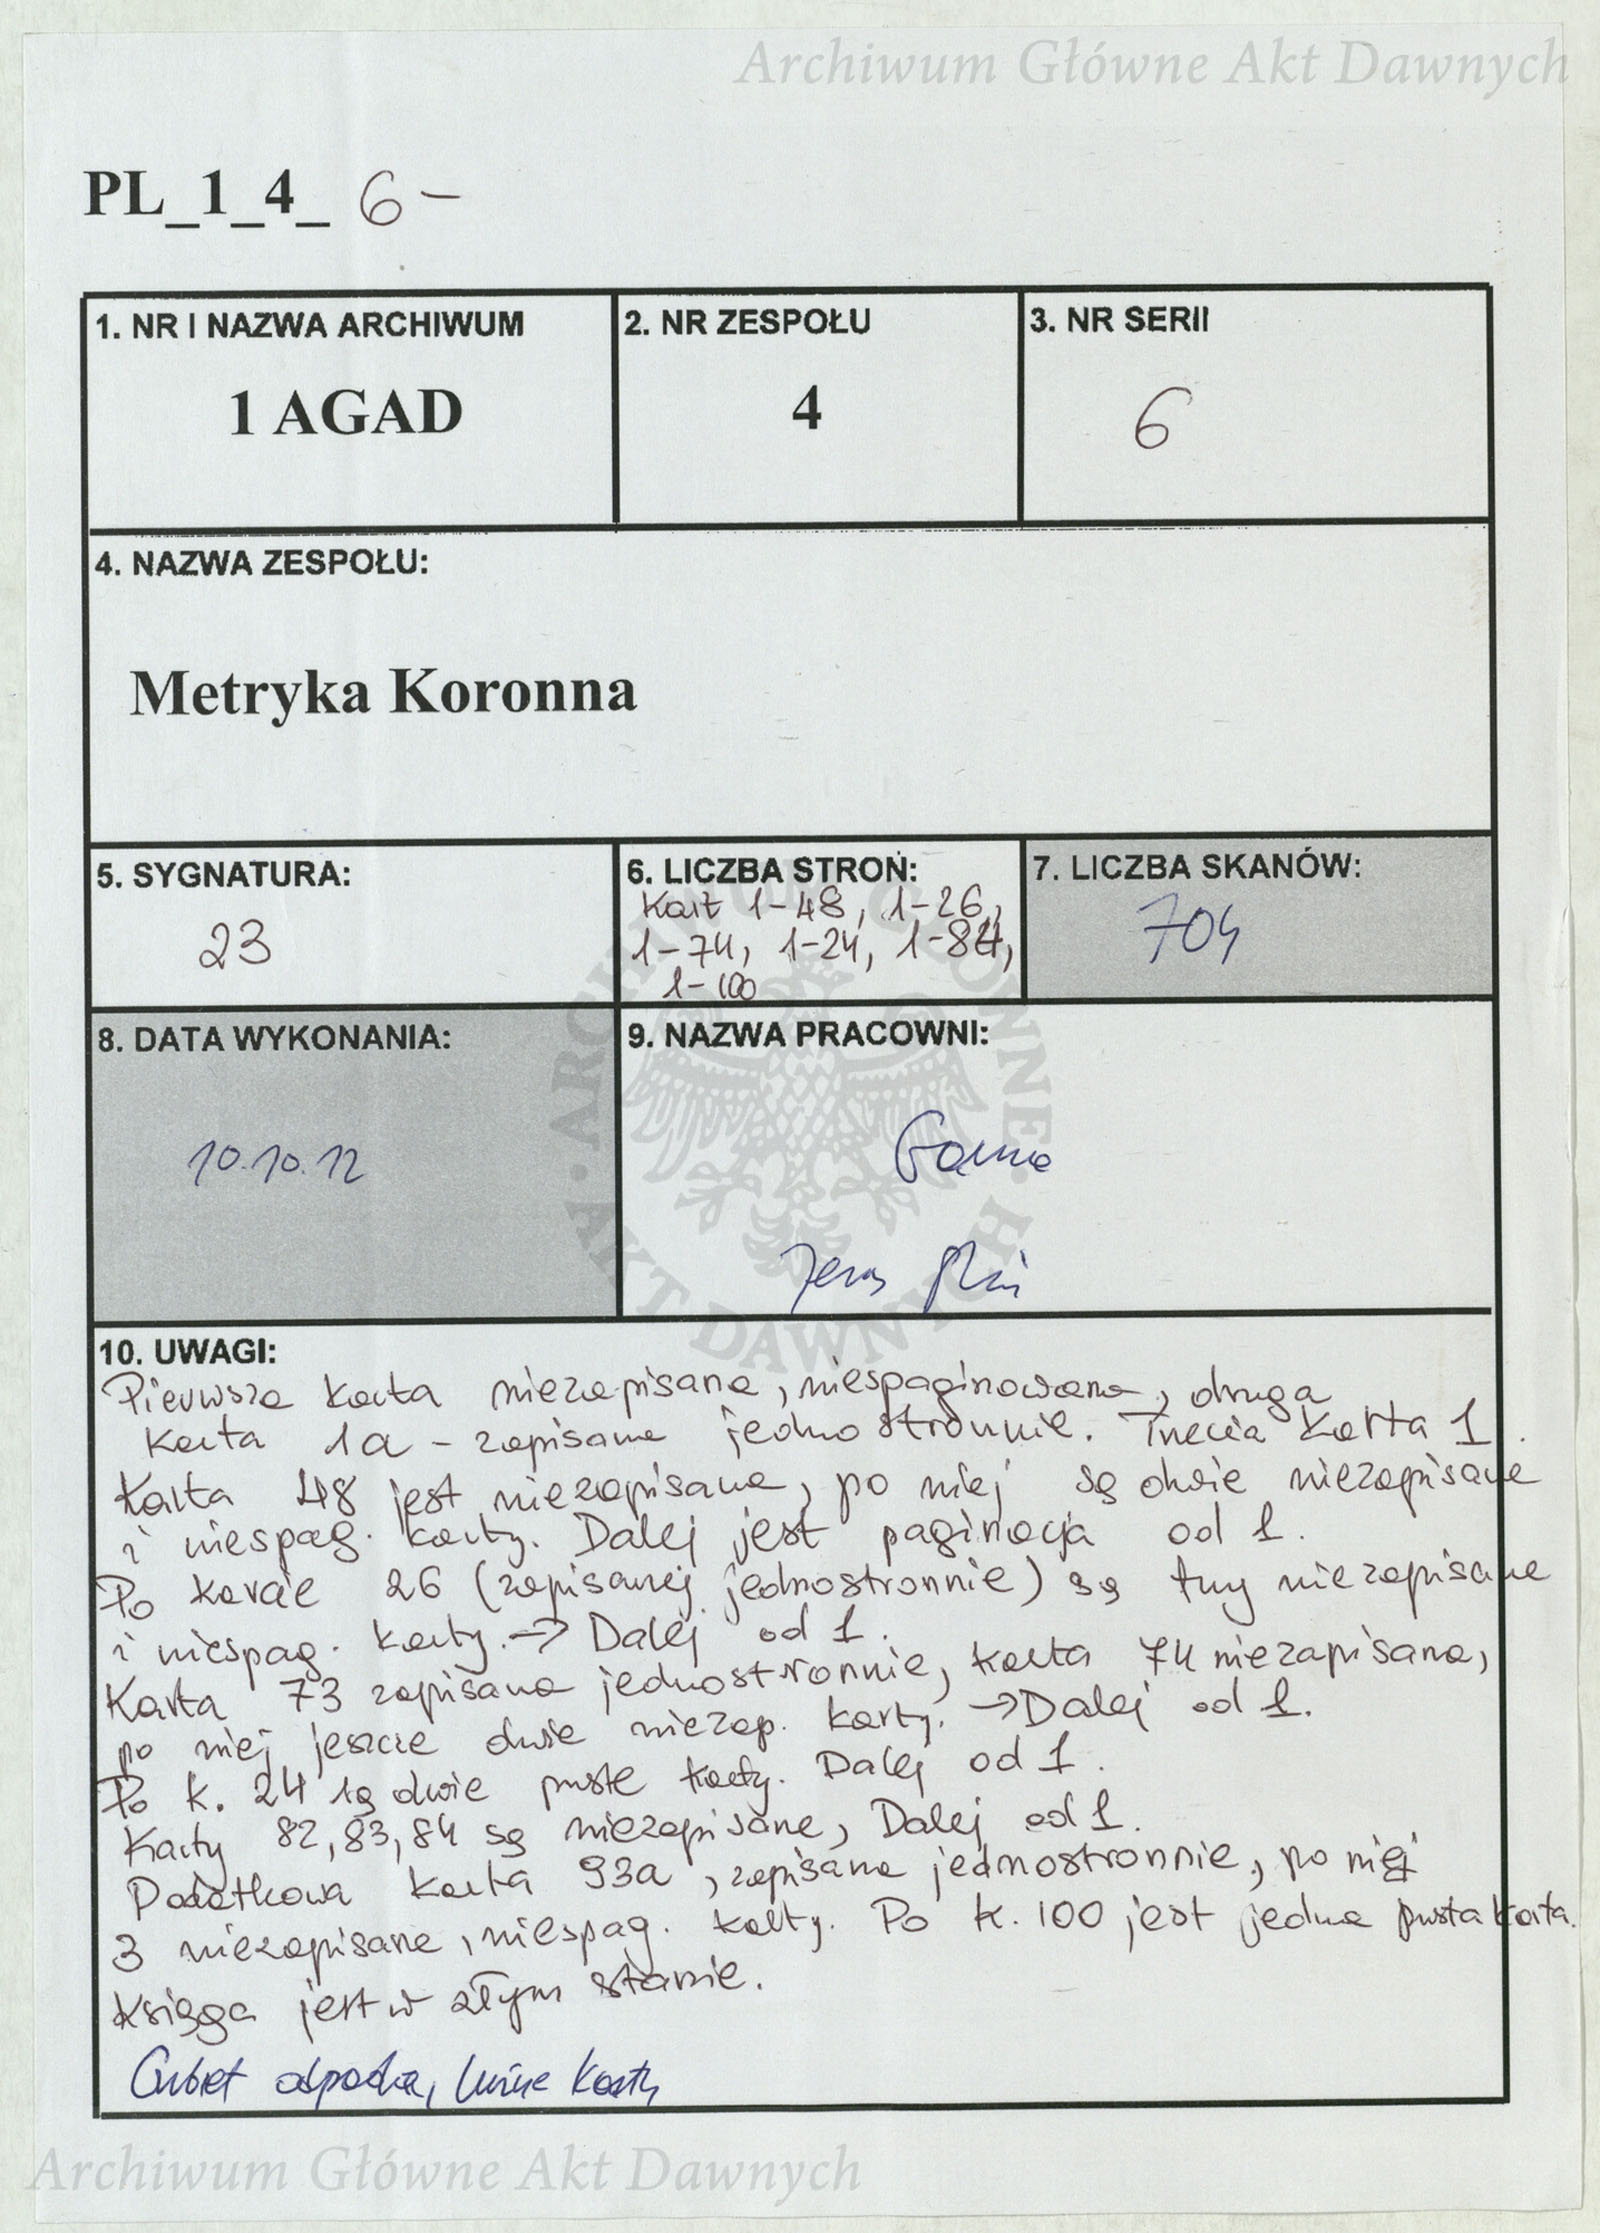 Archiwum Główne Akt Dawnych
PL_1_4_ 6 –
1. NR I NAZWA ARCHIWUM
1 AGAD
2. NR ZESPOŁU
4
3. NR SERII
6
4. NAZWA ZESPOŁU:
Metryka Koronna
5. SYGNATURA:
23
6. LICZBA STRON:
Kart 1-48, 1-26,
1-74, 1-24, 1-84,
1-100
7. LICZBA SKANÓW:
704
8. DATA WYKONANIA:
10.10.12
9. NAZWA PRACOWNI:
ARCHIWUM GŁÓWNE AKT DAWNYCH
10. UWAGI:
Pierwsza karta niezapisana, niespaginowana, druga
karta 1a – zapisana jednostronnie. Trzecia karta 1.
Karta 48 jest niezapisana, po niej są dwie niezapisane
i niespag. karty. Dalej jest paginacja od 1.
Po karcie 26 (zapisanej jednostronnie) są trzy niezapisane
i niespag. karty. → Dalej od 1.
Karta 73 zapisana jednostronnie, karta 74 niezapisana,
po niej jeszcze dwie niezap. karty. → Dalej od 1.
Po k. 24 są dwie puste karty. Dalej od 1.
Karty 82, 83, 84 są niezapisane, Dalej od 1.
Dodatkowa karta 93a, zapisana jednostronnie, po niej
3 niezapisane, niespag. karty. Po k. 100 jest jedna pusta karta.
Księga jest w złym stanie.
Grzbiet odpada, luźne karty
Archiwum Główne Akt Dawnych